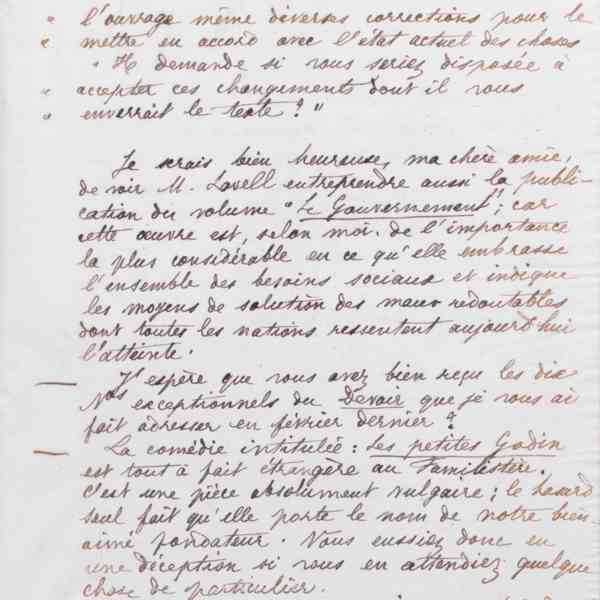 " l'ouvrage même diverses corrections pour le
" mettre en accord avec l'état actuel des choses
" Il demande si vous seriez disposée à
" accepter ces changements dont il vous
" enverrait le texte ? "
Je serais bien heureuse, ma chère amie,
de voir M. Lovell entreprendre aussi la publi-
cation du volume "Le Gouvernement", car
cette œuvre est, selon moi, de l'importance
la plus considérable en ce qu'elle embrasse
l'ensemble des besoins sociaux et indique
les moyens de solution des maux redoutables
dont toutes les nations ressentent aujourd'hui
l'atteinte.
— J'espère que vous avez bien reçu les dix
Nos exceptionnels du Devoir que je vous ai
fait adresser en février dernier ?
— La comédie intitulée : Les petites Godin
est tout à fait étrangère au Familistère.
C'est une pièce absolument vulgaire ; le hasard
seul fait qu'elle porte le nom de notre bien-
aimé fondateur. Vous eussiez donc eu
une déception si vous en attendiez quelque
chose de particulier.